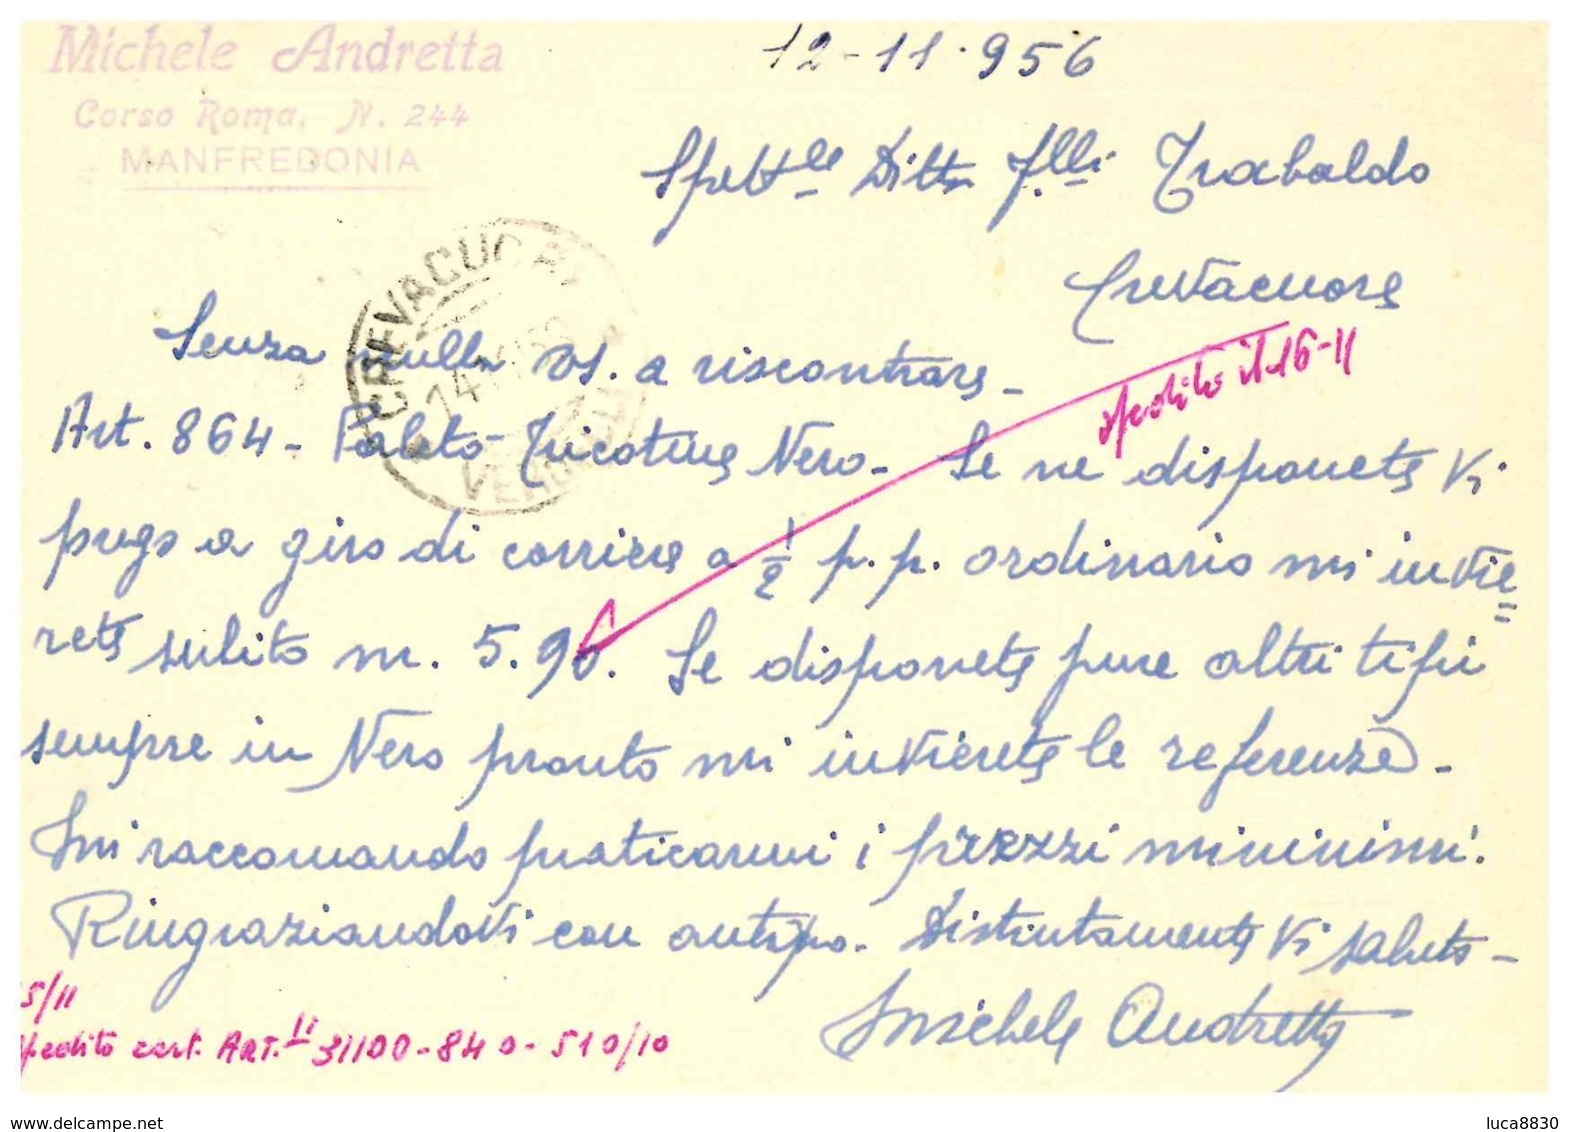 Michele Andretta
Corso Roma, N. 244
MANFREDONIA
12-11-956
Spett.le Ditta F.lli Trabaldo
Crevacuore
CREVACUORE
VERCELLI
Senza nulla Vs. a riscontrare-
spedito il 16-11
Art. 864- Paleto-Tricotine Nero- Se ne disponete Vi
prego a giro di corriere a 1/2 p.p. ordinario mi invie=
rete subito m. 5.90. Se disponete pure altri tipi
sempre in Nero pronto mi invierete le referenze-
Mi raccomando praticarmi i prezzi minimi.
Ringraziandovi con anticipo- Distintamente Vi saluto-
Michele Andretta
5/11
spedito cart. ART.li 31100-840-510/10
www.delcampe.net
luca8830